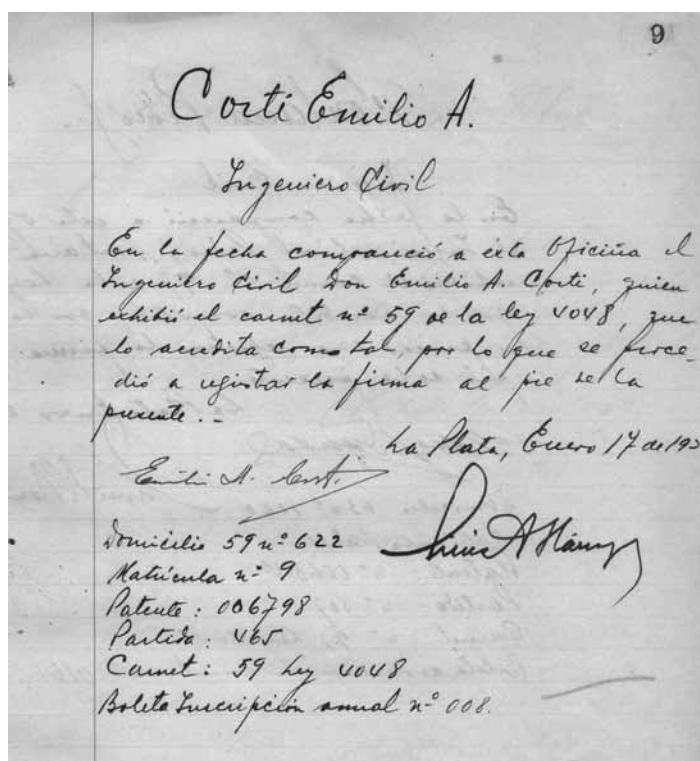 9
Corti Emilio A.
Ingeniero Civil
En la fecha compareció a esta Oficina el
Ingeniero Civil Don Emilio A. Corti, quien
exhibió el carnet nº 59 de la ley 4048, que
lo acredita como tal, por lo que se proce-
dió a registrar la firma al pie de la
presente.-
La Plata, Enero 17 de 193
Emilio A. Corti
Domicilio 59 nº 622
Matrícula nº 9
Patente: 006798
Partida: 465
Carnet: 59 Ley 4048
Boleta Inscripción anual nº 008.